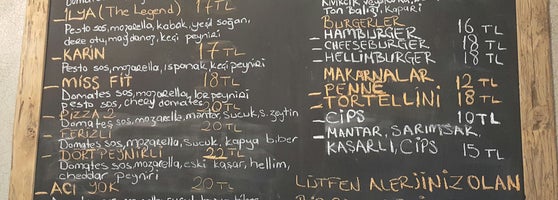 Domates sos,
-İLYA (The Legend) 17 TL
Pesto sos, mozarella, kabak, yeşil soğan,
dere otu, maydanoz, keçi peyniri
-KARİN 17 TL
Pesto sos, mozarella, ıspanak, keçi peyniri
-MİSS FİT 18 TL
Domates sos, mozarella, Lor peyniri
pesto sos, cherry domates
-PİZZA 2 20 TL
Domates sos, mozarella, mantar, sucuk, s. zeytin
-FERİZLİ 20 TL
Domates sos, mozarella, sucuk, kapya biber
-DÖRT PEYNİRLİ 22 TL
Domates sos, mozarella, eski kaşar, hellim,
cheddar peyniri
-ACI YOK 20 TL
Ton balığı, kapari
BURGERLER
-HAMBURGER 16 TL
-CHEESEBURGER 18 TL
-HELLIMBURGER 18 TL
MAKARNALAR
-PENNE 12 TL
-TORTELLINI 18 TL
-CİPS 10 TL
-MANTAR, SARIMSAK,
KAŞARLI, CİPS 15 TL
LÜTFEN ALERJİNİZ OLAN